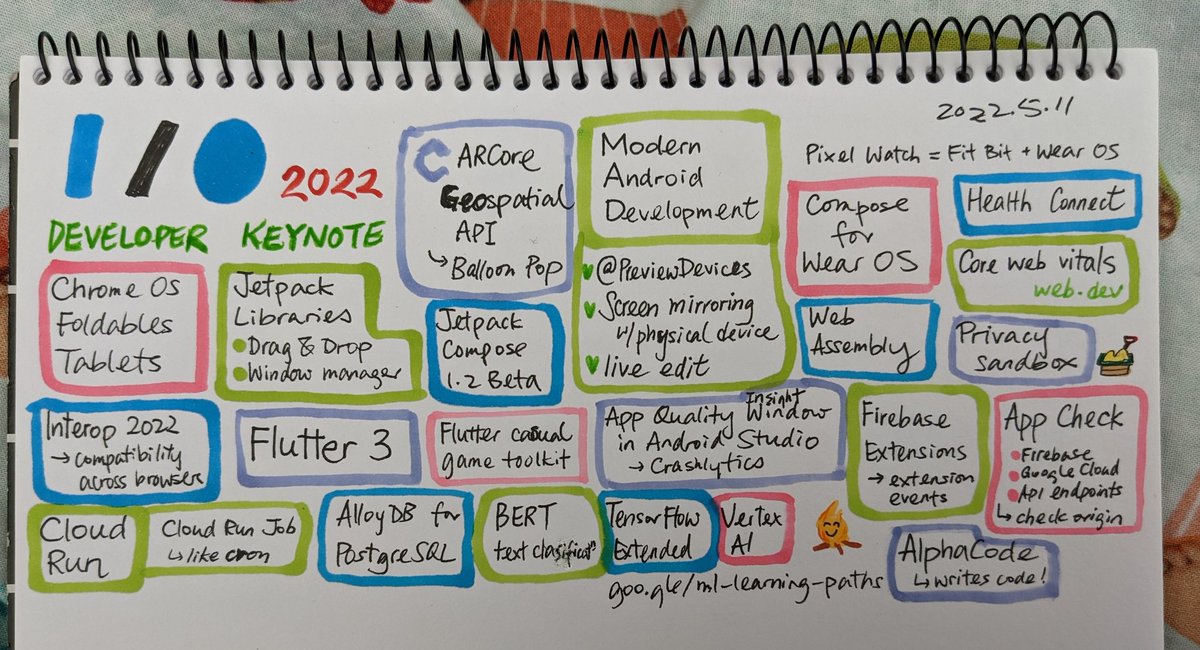 2022.5.11
I/O 2022
DEVELOPER KEYNOTE
ARCore
Geospatial
API
↳ Balloon Pop
Modern
Android
Development
@PreviewDevices
Screen mirroring
w/physical device
live edit
Pixel Watch = Fit Bit + Wear OS
Compose
for
Wear OS
Health Connect
Core web vitals
web.dev
Chrome OS
Foldables
Tablets
Jetpack
Libraries
Drag & Drop
Window manager
Jetpack
Compose
1.2 Beta
Web
Assembly
Privacy
Sandbox
Interop 2022
→ compatibility
across browsers
Flutter 3
Flutter casual
game toolkit
App Quality Insight Window
in Android Studio
→ Crashlytics
Firebase
Extensions
→ extension
events
App Check
Firebase
Google Cloud
API endpoints
↳ check origin
Cloud
Run
Cloud Run Job
↳ like cron
AlloyDB for
PostgreSQL
BERT
text clasificatⁿ
TensorFlow
Extended
Vertex
AI
goo.gle/ml-learning-paths
AlphaCode
↳ writes code!